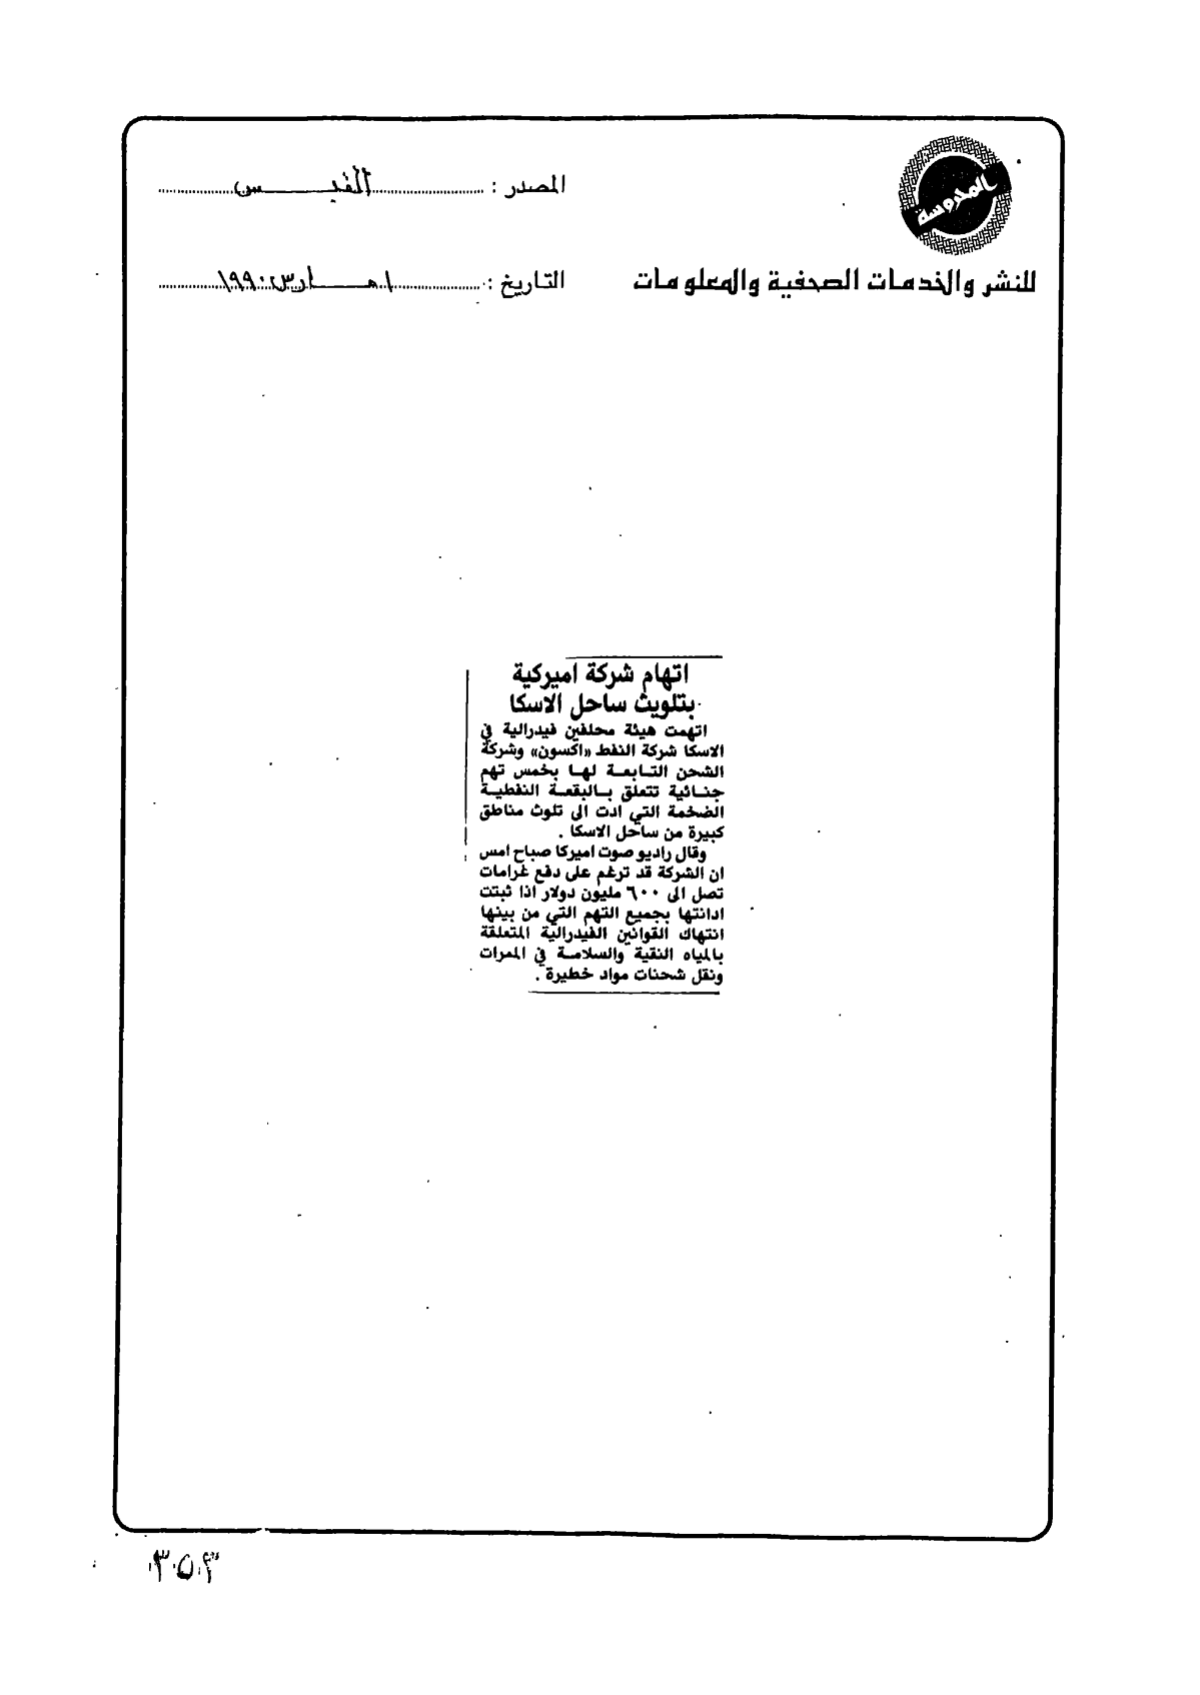 المحروسة
للنشر والخدمات الصحفية والمعلومات
المصدر : القبس
التاريخ : ١ مارس ١٩٩٠
اتهام شركة اميركية
بتلويث ساحل الاسكا
اتهمت هيئة محلفين فيدرالية في
الاسكا شركة النفط «اكسون» وشركة
الشحن التابعة لها بخمس تهم
جنائية تتعلق بالبقعة النفطية
الضخمة التي ادت الى تلوث مناطق
كبيرة من ساحل الاسكا .
وقال راديو صوت اميركا صباح امس
ان الشركة قد ترغم على دفع غرامات
تصل الى ٦٠٠ مليون دولار اذا ثبتت
ادانتها بجميع التهم التي من بينها
انتهاك القوانين الفيدرالية المتعلقة
بالمياه النقية والسلامة في الممرات
ونقل شحنات مواد خطيرة .